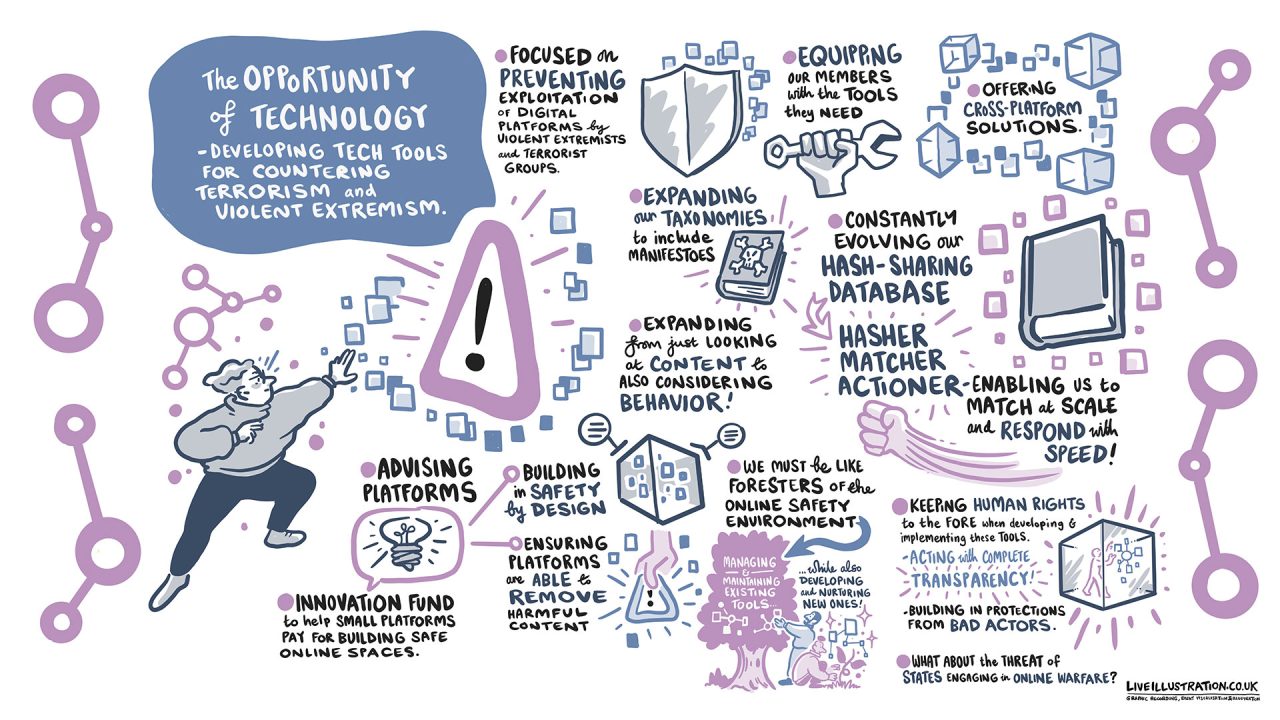 The OPPORTUNITY
of TECHNOLOGY
-DEVELOPING TECH TOOLS
FOR COUNTERING
TERRORISM and
VIOLENT EXTREMISM.
FOCUSED on
PREVENTING
EXPLOITATION
OF DIGITAL
PLATFORMS by
VIOLENT EXTREMISTS
and TERRORIST
GROUPS.
EQUIPPING
OUR MEMBERS
with the TOOLS
they NEED
OFFERING
CROSS-PLATFORM
SOLUTIONS.
EXPANDING
our TAXONOMIES
to include
MANIFESTOES
CONSTANTLY
EVOLVING our
HASH-SHARING
DATABASE
HASHER
MATCHER
ACTIONER
-ENABLING US to
MATCH at SCALE
and RESPOND with
SPEED!
EXPANDING
from just LOOKING
at CONTENT to
ALSO CONSIDERING
BEHAVIOR!
!
ADVISING
PLATFORMS
BUILDING
in SAFETY
by DESIGN
ENSURING
PLATFORMS
are ABLE to
REMOVE
HARMFUL
CONTENT
!
INNOVATION FUND
to help SMALL PLATFORMS
PAY FOR BUILDING SAFE
ONLINE SPACES.
WE MUST be LIKE
FORESTERS of the
ONLINE SAFETY
ENVIRONMENT
MANAGING
&
MAINTAINING
EXISTING
TOOLS...
...while also
DEVELOPING
and NURTURING
NEW ONES!
KEEPING HUMAN RIGHTS
to the FORE when developing &
implementing these TOOLS.
-ACTING with COMPLETE
TRANSPARENCY!
-BUILDING IN PROTECTIONS
FROM BAD ACTORS.
WHAT ABOUT the THREAT of
STATES ENGAGING in ONLINE WARFARE?
LIVEILLUSTRATION.CO.UK
GRAPHIC RECORDING, EVENT VISUALISATION & ILLUSTRATION